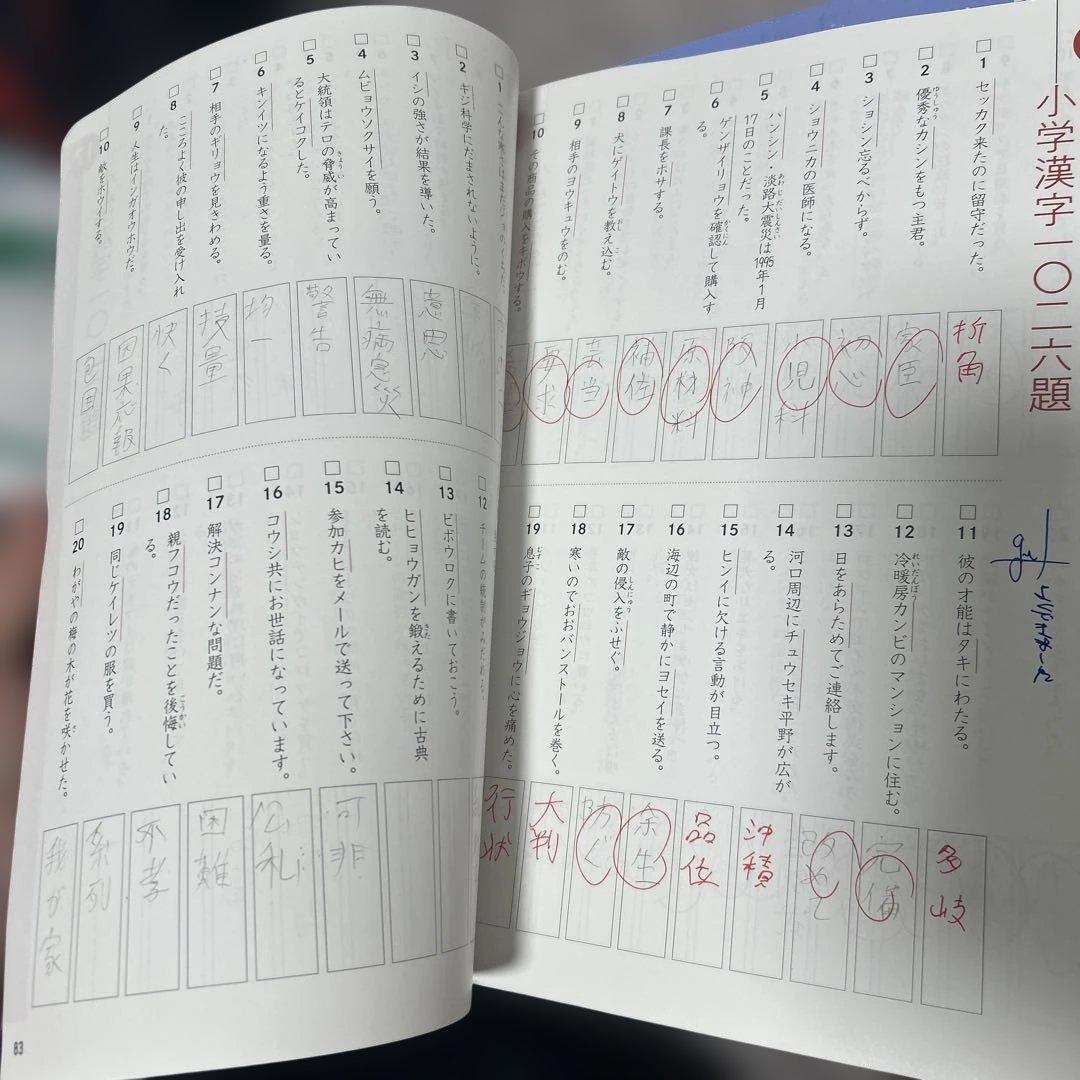 小学漢字一〇二六題
1 セッカク来たのに留守だった。
折角
2 優秀なカシンをもつ主君。
家臣
3 ショシン忘るべからず。
初心
4 ショウニカの医師になる。
小児科
5 ハンシン・淡路大震災は1995年1月17日のことだった。
阪神
6 ゲンザイリョウを確認して購入する。
原材料
7 課長をホサする。
補佐
8 犬にゲイトウを教え込む。
芸当
9 相手のヨウキュウをのむ。
要求
10 その商品の購入をキボウする。
11 彼の才能はタキにわたる。
多岐
12 冷暖房カンビのマンションに住む。
完備
13 日をあらためてご連絡します。
改めて
14 河口周辺にチュウセキ平野が広がる。
沖積
15 ヒンイに欠ける言動が目立つ。
品位
16 海辺の町で静かにヨセイを送る。
余生
17 敵の侵入をふせぐ。
防ぐ
18 寒いのでおおバンストールを巻く。
大判
19 息子のギョウジョウに心を痛めた。
行状
2 ギジ科学にだまされないように。
3 イシの強さが結果を導いた。
意思
4 ムビョウソクサイを願う。
無病息災
5 大統領はテロの脅威が高まっているとケイコクした。
警告
6 キンイツになるよう重さを量る。
均一
7 相手のギリョウを見きわめる。
技量
8 こころよく彼の申し出を受け入れた。
快く
9 人生はインガオウホウだ。
因果応報
10 敵をホウイする。
包囲
12 チームの統制がみだれる。
13 ビボウロクに書いておこう。
14 ヒヒョウガンを鍛えるために古典を読む。
15 参加カヒをメールで送って下さい。
可非
16 コウシ共にお世話になっています。
公私
17 解決コンナンな問題だ。
困難
18 親フコウだったことを後悔している。
不孝
19 同じケイレツの服を買う。
系列
20 わがやの梅の木が花を咲かせた。
我が家
83